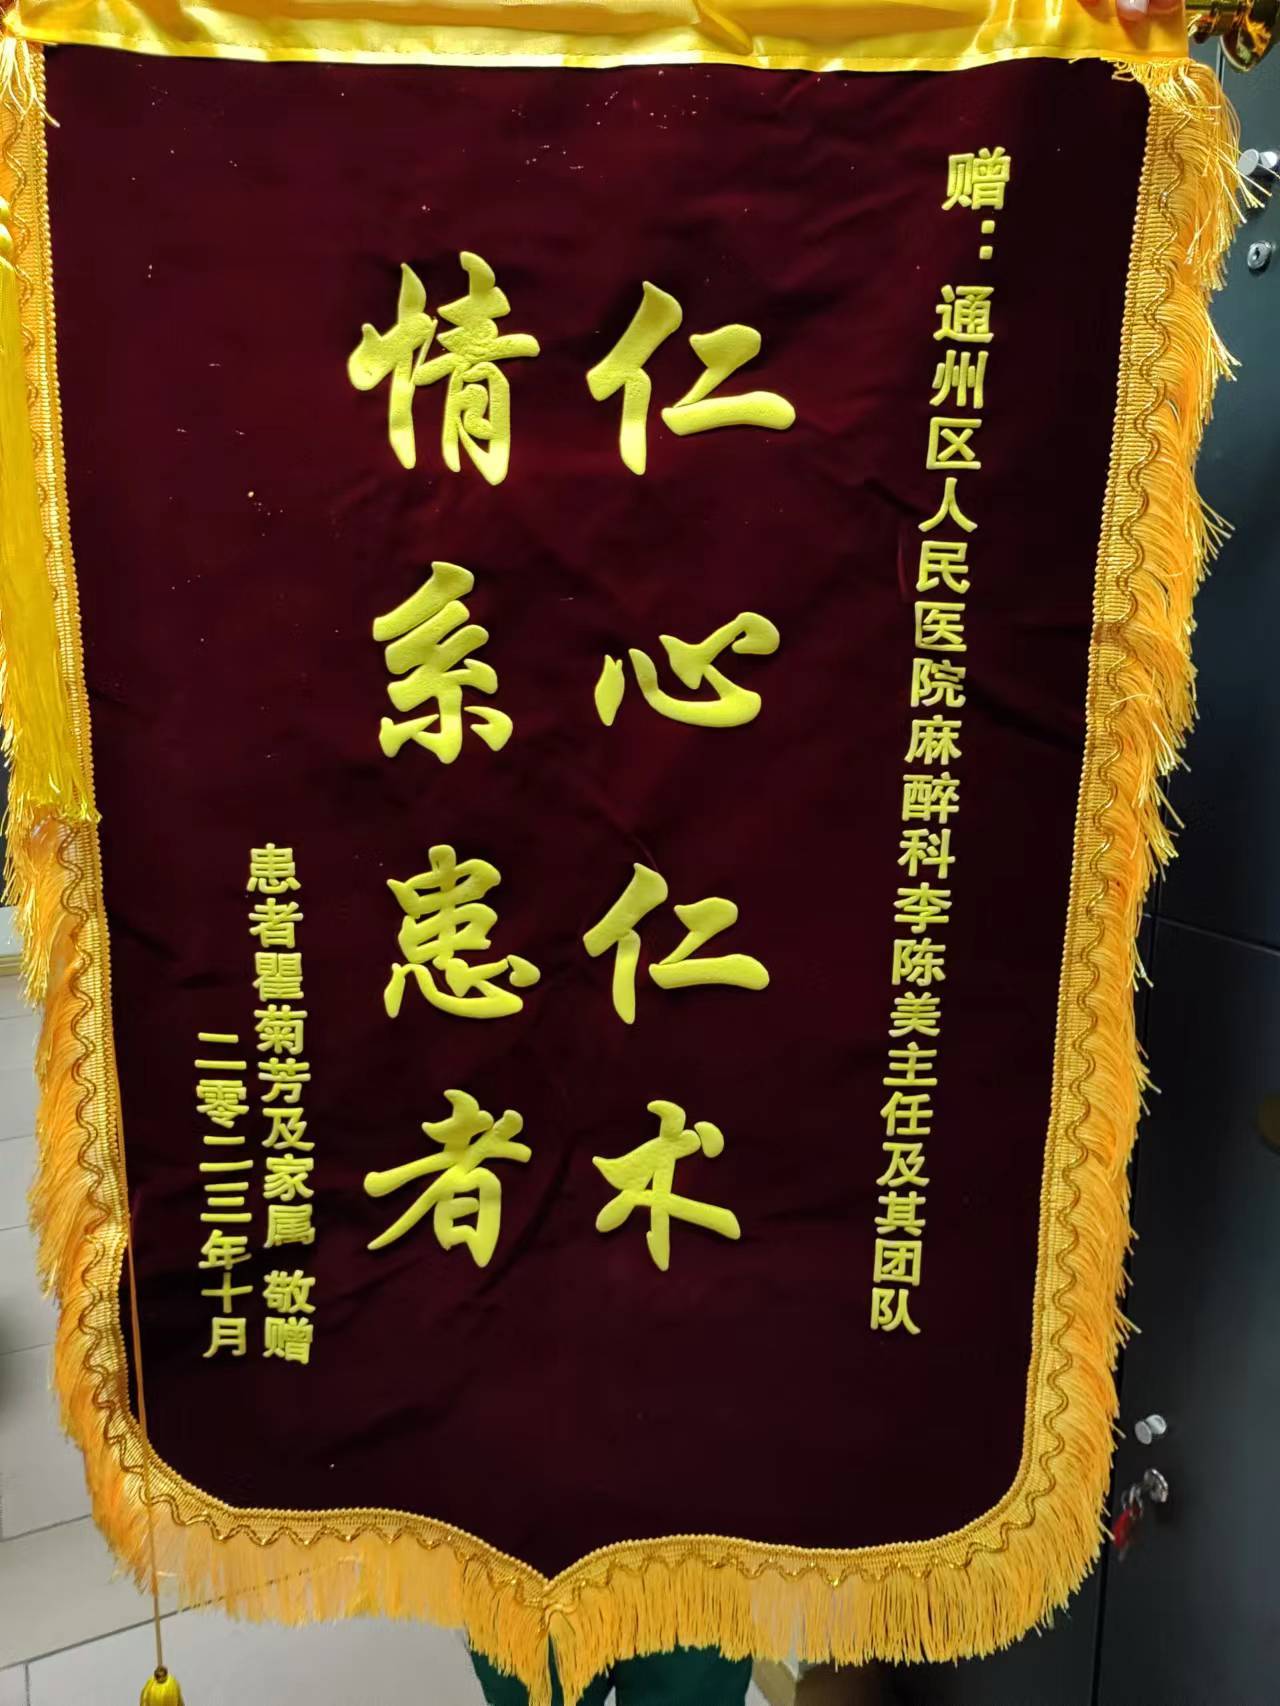 赠：通州区人民医院麻醉科李陈美主任及其团队
仁心仁术
情系患者
患者瞿菊芳及家属 敬赠
二零二三年十月